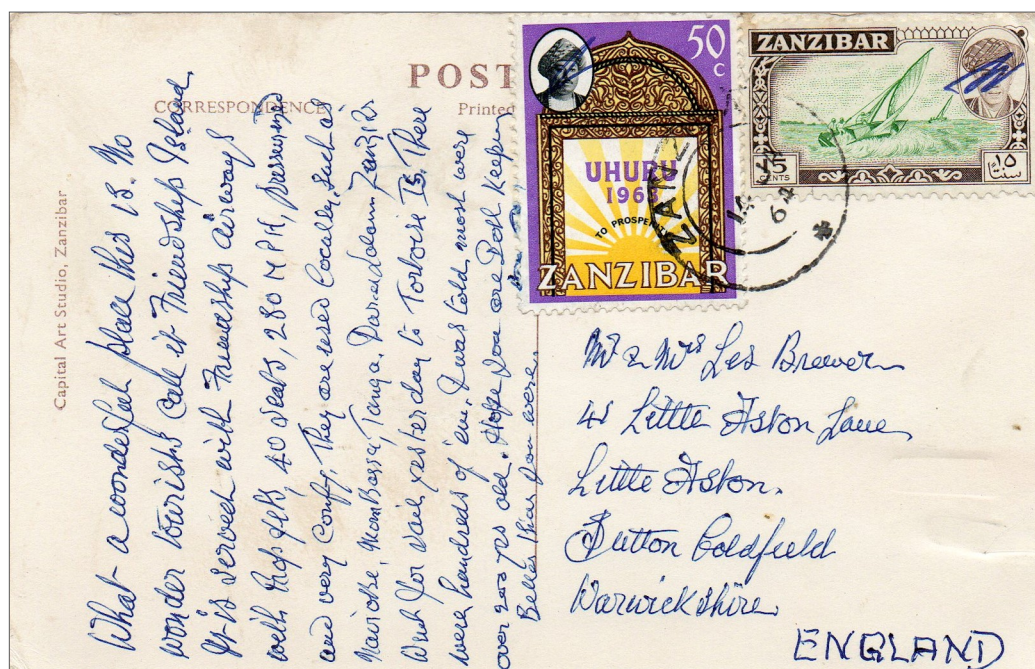 POST
CORRESPONDENCE
Printed
Capital Art Studio, Zanzibar
What a wonderful place this is. No
wonder tourists call it Friendship Island
It is served with Friendship Airways
with Prop Jets, 40 seats, 280 MPH,
and very comfy, They are used locally, such as
Nairobi, Mombassa, Tanga,
Went for sail yesterday to Tortoise Is. There
were hundreds of em. I was told most were
over 200 yrs old. Hope you are Both Keeping
Better than you were
50
c
UHURU
1963
ZANZIBAR
ZANZIBAR
CENTS
١٥
سنت
ZANZ
14
64
Mr & Mrs Les Brewer
41 Little Aston Lane
Little Aston.
Sutton Coldfield
Warwickshire
ENGLAND